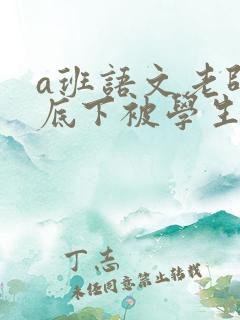 a班語文老師
底下被學生
丁志
未经同意禁止转载